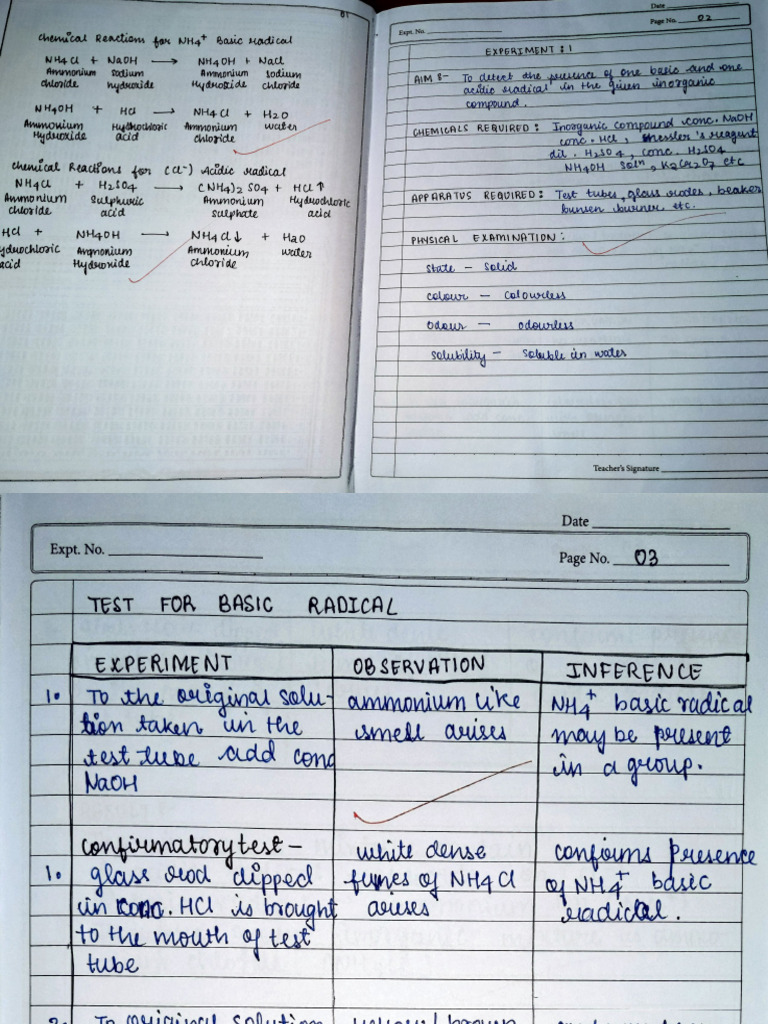 01
Chemical Reactions for NH4+ Basic Radical
NH4Cl + NaOH → NH4OH + NaCl
Ammonium Sodium Ammonium Sodium
chloride hydroxide Hydroxide chloride
NH4OH + HCl → NH4Cl + H2O
Ammonium Hydrochloric Ammonium water
Hydroxide acid chloride
Chemical Reactions for (Cl-) Acidic Radical
NH4Cl + H2SO4 → (NH4)2 SO4 + HCl↑
Ammonium Sulphuric Ammonium Hydrochloric
chloride acid Sulphate acid
HCl + NH4OH → NH4Cl↓ + H2O
ydrochloric Ammonium Ammonium water
acid Hydroxide chloride
Date
Expt. No. Page No. 02
EXPERIMENT : 1
AIM :- To detect the presence of one basic and one
acidic radical in the given inorganic
compound.
CHEMICALS REQUIRED : Inorganic compound conc. NaOH
conc. HCl, Nessler's reagent
dil. H2SO4, conc. H2SO4
NH4OH soln, K2Cr2O7 etc
APPARATUS REQUIRED : Test tubes, glass rodes, beaker
bunsen burner, etc.
PHYSICAL EXAMINATION :
State – Solid
colour – Colourless
Odour – odourless
Solubility – Soluble in water
Teacher's Signature
Date
Expt. No. Page No. 03
TEST FOR BASIC RADICAL
EXPERIMENT OBSERVATION INFERENCE
1. To the original solu- ammonium like NH4+ basic radical
tion taken in the smell arises may be present
test tube add conc in a group.
NaOH
confirmatory test – white dense confirms Presence
1. glass rod dipped fumes of NH4Cl of NH4+ basic
in conc. HCl is brought arises radical.
to the mouth of test
tube
2. To original solution